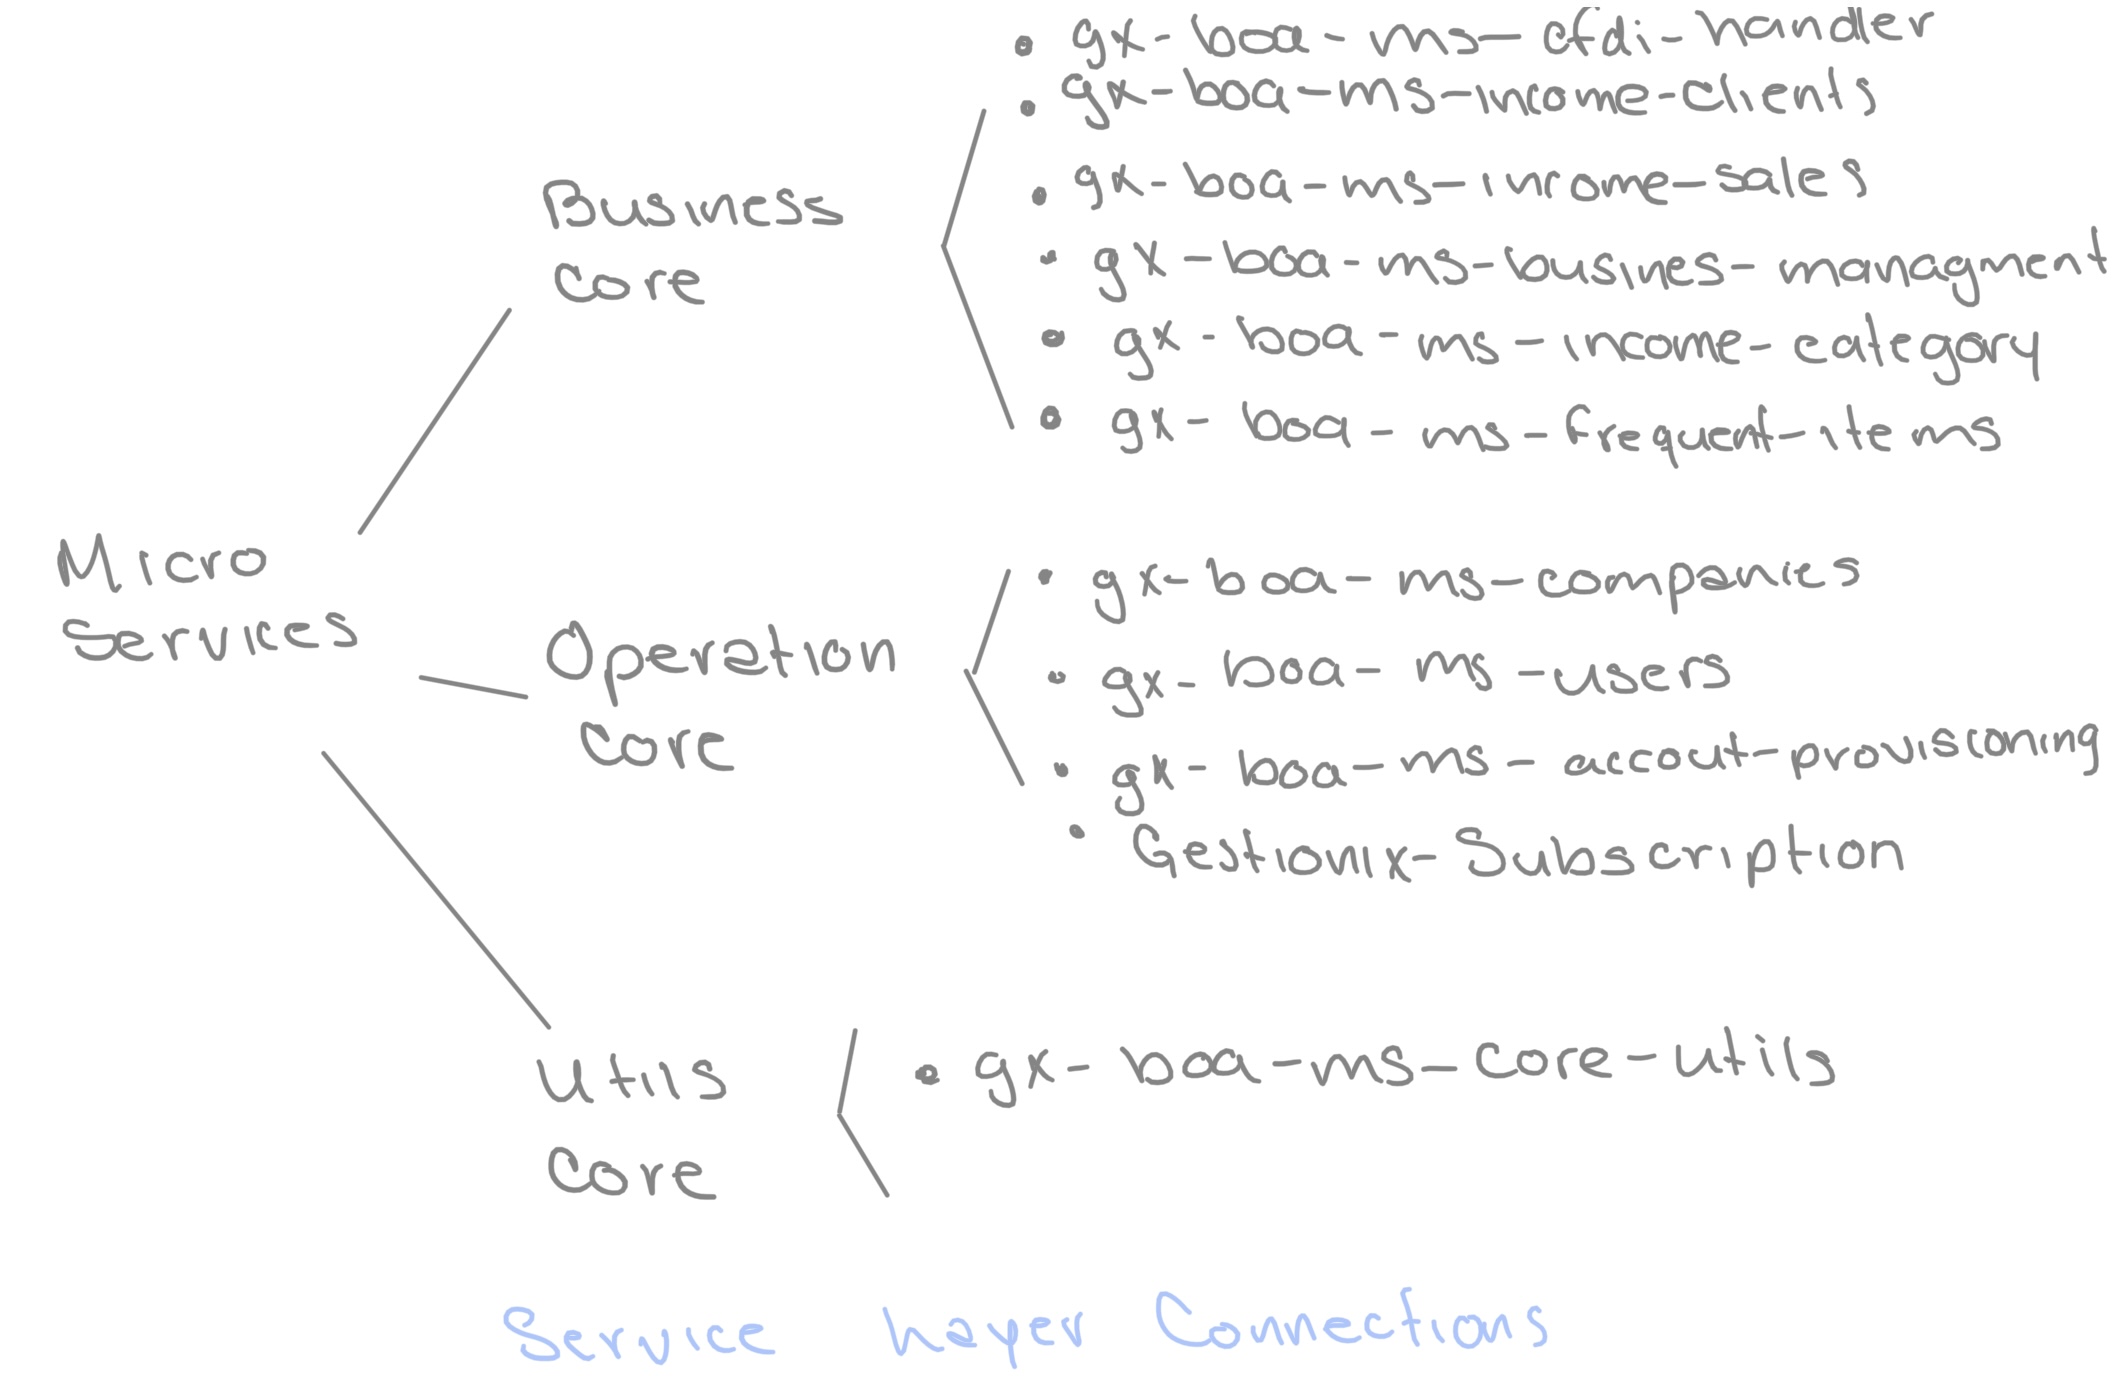 Micro
Services
Business
Core
• gx-boa-ms-cfdi-handler
• gx-boa-ms-income-clients
• gx-boa-ms-income-sales
• gx-boa-ms-busines-managment
• gx-boa-ms-income-category
• gx-boa-ms-frequent-items
Operation
Core
• gx-boa-ms-companies
• gx-boa-ms-users
• gx-boa-ms-accout-provisconing
• Gestionix-Subscription
Utils
Core
• gx-boa-ms-core-utils
Service Layer Connections